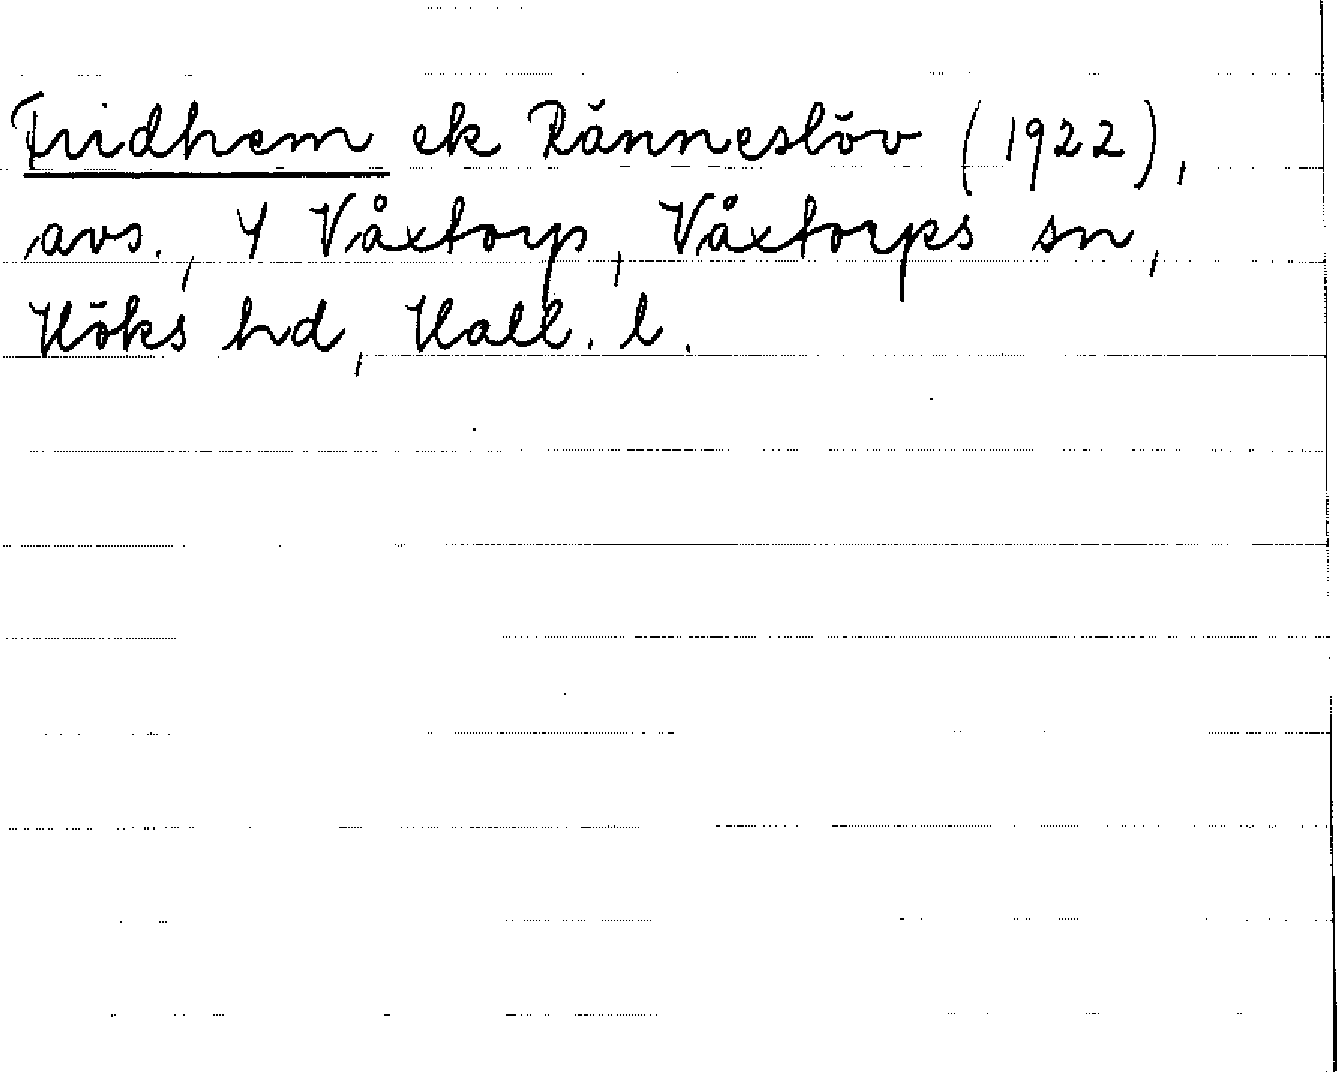 Fridhem ek Ränneslöv (1922),
avs., Y Våxtorp, Våxtorps sn,
Höks hd, Hall. l.